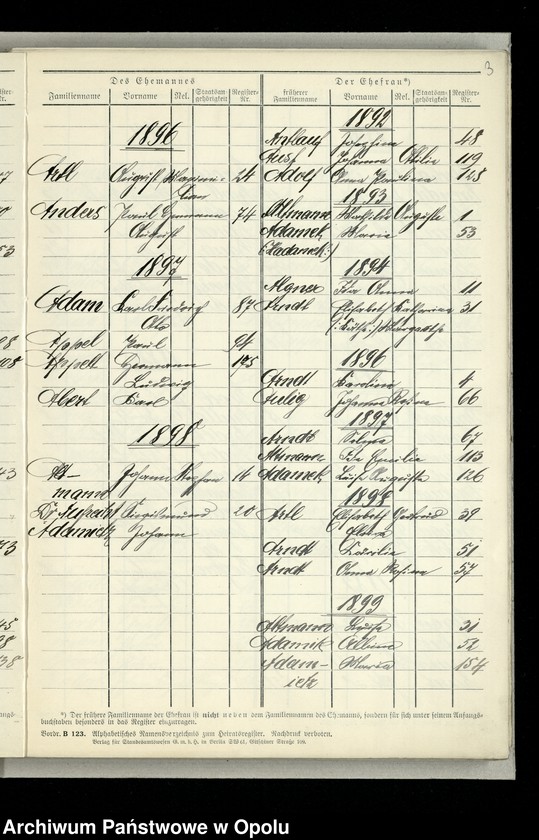 3
Des Ehemannes
Der Ehefrau*)
Familienname Vorname Rel. Staatsangehörigkeit Register-Nr.
früherer Familienname Vorname Rel. Staatsangehörigkeit Register-Nr.
1896
Artl August 24
Anders Paul Hermann 74
August
1897
Adam Karl Ludwig 87
Otto
Appel Paul 94
Appelt Hermann 175
Ludwig
Abert Karl
1898
Alt- Johann 14
mann
20
Adametz Johann
1892
Josefina 48
Johanna Ottilie 119
Adolf Anna Paulina 125
1893
Altmann Mathilde Auguste 1
Adamek Maria 53
(:Zadamek:)
1894
Algner Ida Anna 11
Arndt Elisabeth Katharina 31
Margarethe
1896
Arndt Karoline 4
Aulig Johanna Rosina 66
1897
Arndt Selma 67
Altmann Ida Emilie 113
Adamek Luise Auguste 126
1898
Artl Elisabeth Gertrud 39
Klara
Arndt 51
Arndt Anna Rosina 57
1899
Altmann 31
Adamik Albine 52
Adam- Maria 154
ietz
*) Der frühere Familienname der Ehefrau ist nicht neben dem Familiennamen des Ehemanns, sondern für sich unter seinem Anfangs-
buchstaben besonders in das Register einzutragen.
Vordr. B 123. Alphabetisches Namensverzeichnis zum Heiratsregister. Nachdruck verboten.
Verlag für Standesamtswesen G. m. b. H. in Berlin SW 61, Gitschiner Straße 109.
Archiwum Państwowe w Opolu